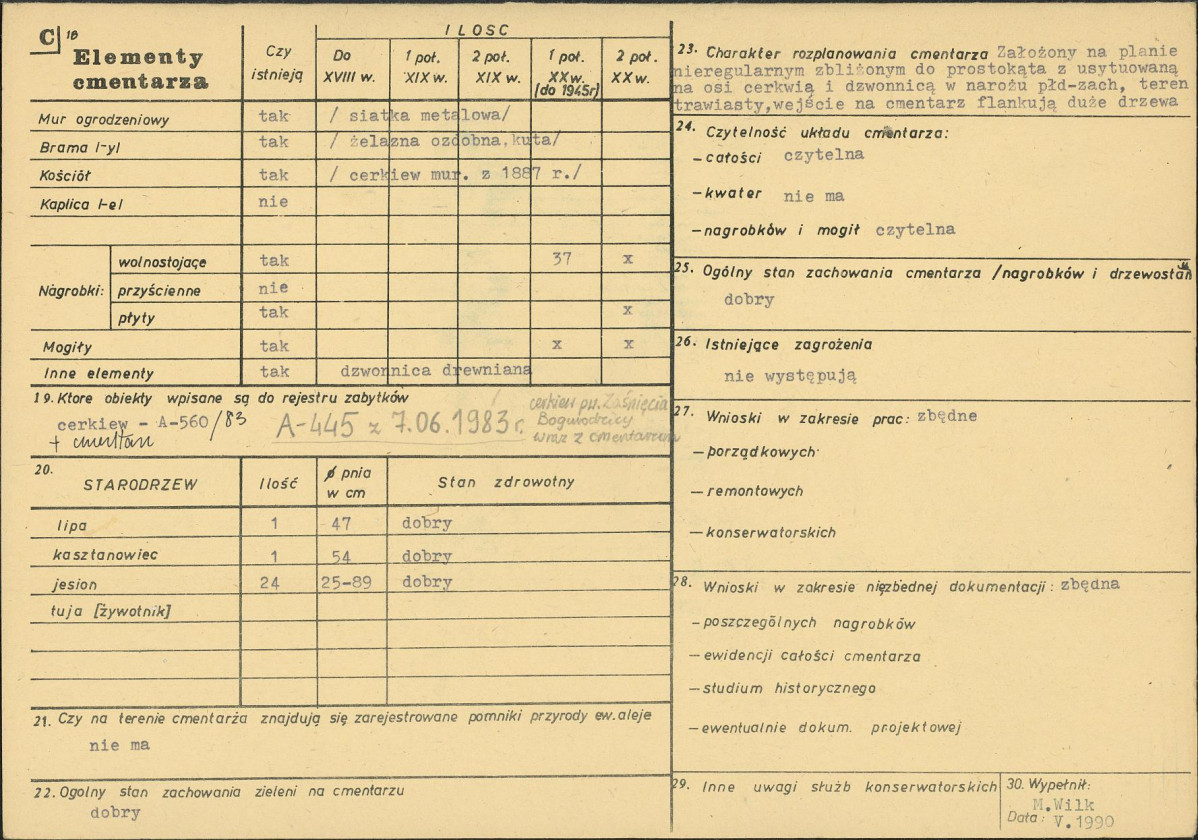 C 18
Elementy cmentarza
Czy istnieją
ILOSC
Do XVIII w.
1 poł. XIX w.
2 poł. XIX w.
1 poł. XX w. (do 1945r)
2 poł. XX w.
Mur ogrodzeniowy tak / siatka metalowa/
Brama I-yl tak / żelazna ozdobna,kuta/
Kościół tak / cerkiew mur. z 1887 r./
Kaplica I-el nie
Nagrobki:
wolnostojące tak 37 x
przyścienne nie
płyty tak x
Mogiły tak x x
Inne elementy tak dzwonnica drewniana
19. Ktore obiekty wpisane są do rejestru zabytków
cerkiew - A-560/83
+ cmentarz
A-445 z 7.06.1983 r.
cerkiew pw. Zaśnięcia
Bogurodzicy
wraz z cmentarzem
20.
STARODRZEW Ilość ø pnia w cm Stan zdrowotny
lipa 1 47 dobry
kasztanowiec 1 54 dobry
jesion 24 25-89 dobry
tuja [żywotnik]
21. Czy na terenie cmentarza znajdują się zarejestrowane pomniki przyrody ew. aleje
nie ma
22. Ogolny stan zachowania zieleni na cmentarzu
dobry
23. Charakter rozplanowania cmentarza Założony na planie
nieregularnym zbliżonym do prostokąta z usytuowaną
na osi cerkwią i dzwonnicą w narożu płd-zach, teren
trawiasty,wejście na cmentarz flankują duże drzewa
24. Czytelność układu cmentarza:
- całości czytelna
- kwater nie ma
- nagrobków i mogił czytelna
25. Ogólny stan zachowania cmentarza /nagrobków i drzewostan
dobry
26. Istniejące zagrożenia
nie występują
27. Wnioski w zakresie prac: zbędne
- porządkowych
- remontowych
- konserwatorskich
28. Wnioski w zakresie niezbednej dokumentacji: zbędna
- poszczególnych nagrobków
- ewidencji całości cmentarza
- studium historycznego
- ewentualnie dokum. projektowej
29. Inne uwagi służb konserwatorskich
30. Wypełnił:
M.Wilk
Data: V.1990